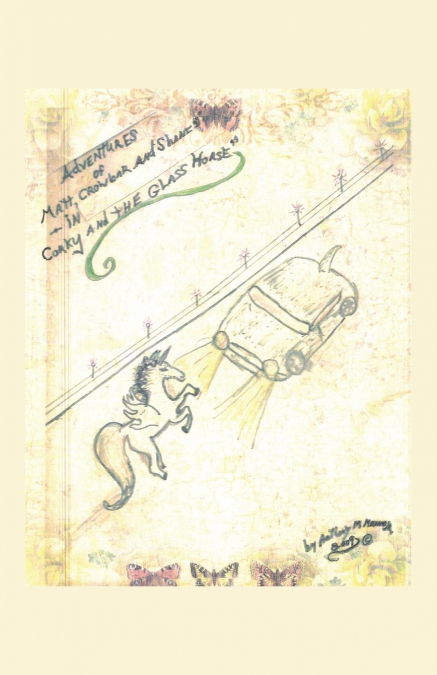 ADVENTURES
OF
MATT, CROWBAR AND SHANE"
- IN
CORKY AND THE GLASS HORSE"
by Anthony M
2009 ©